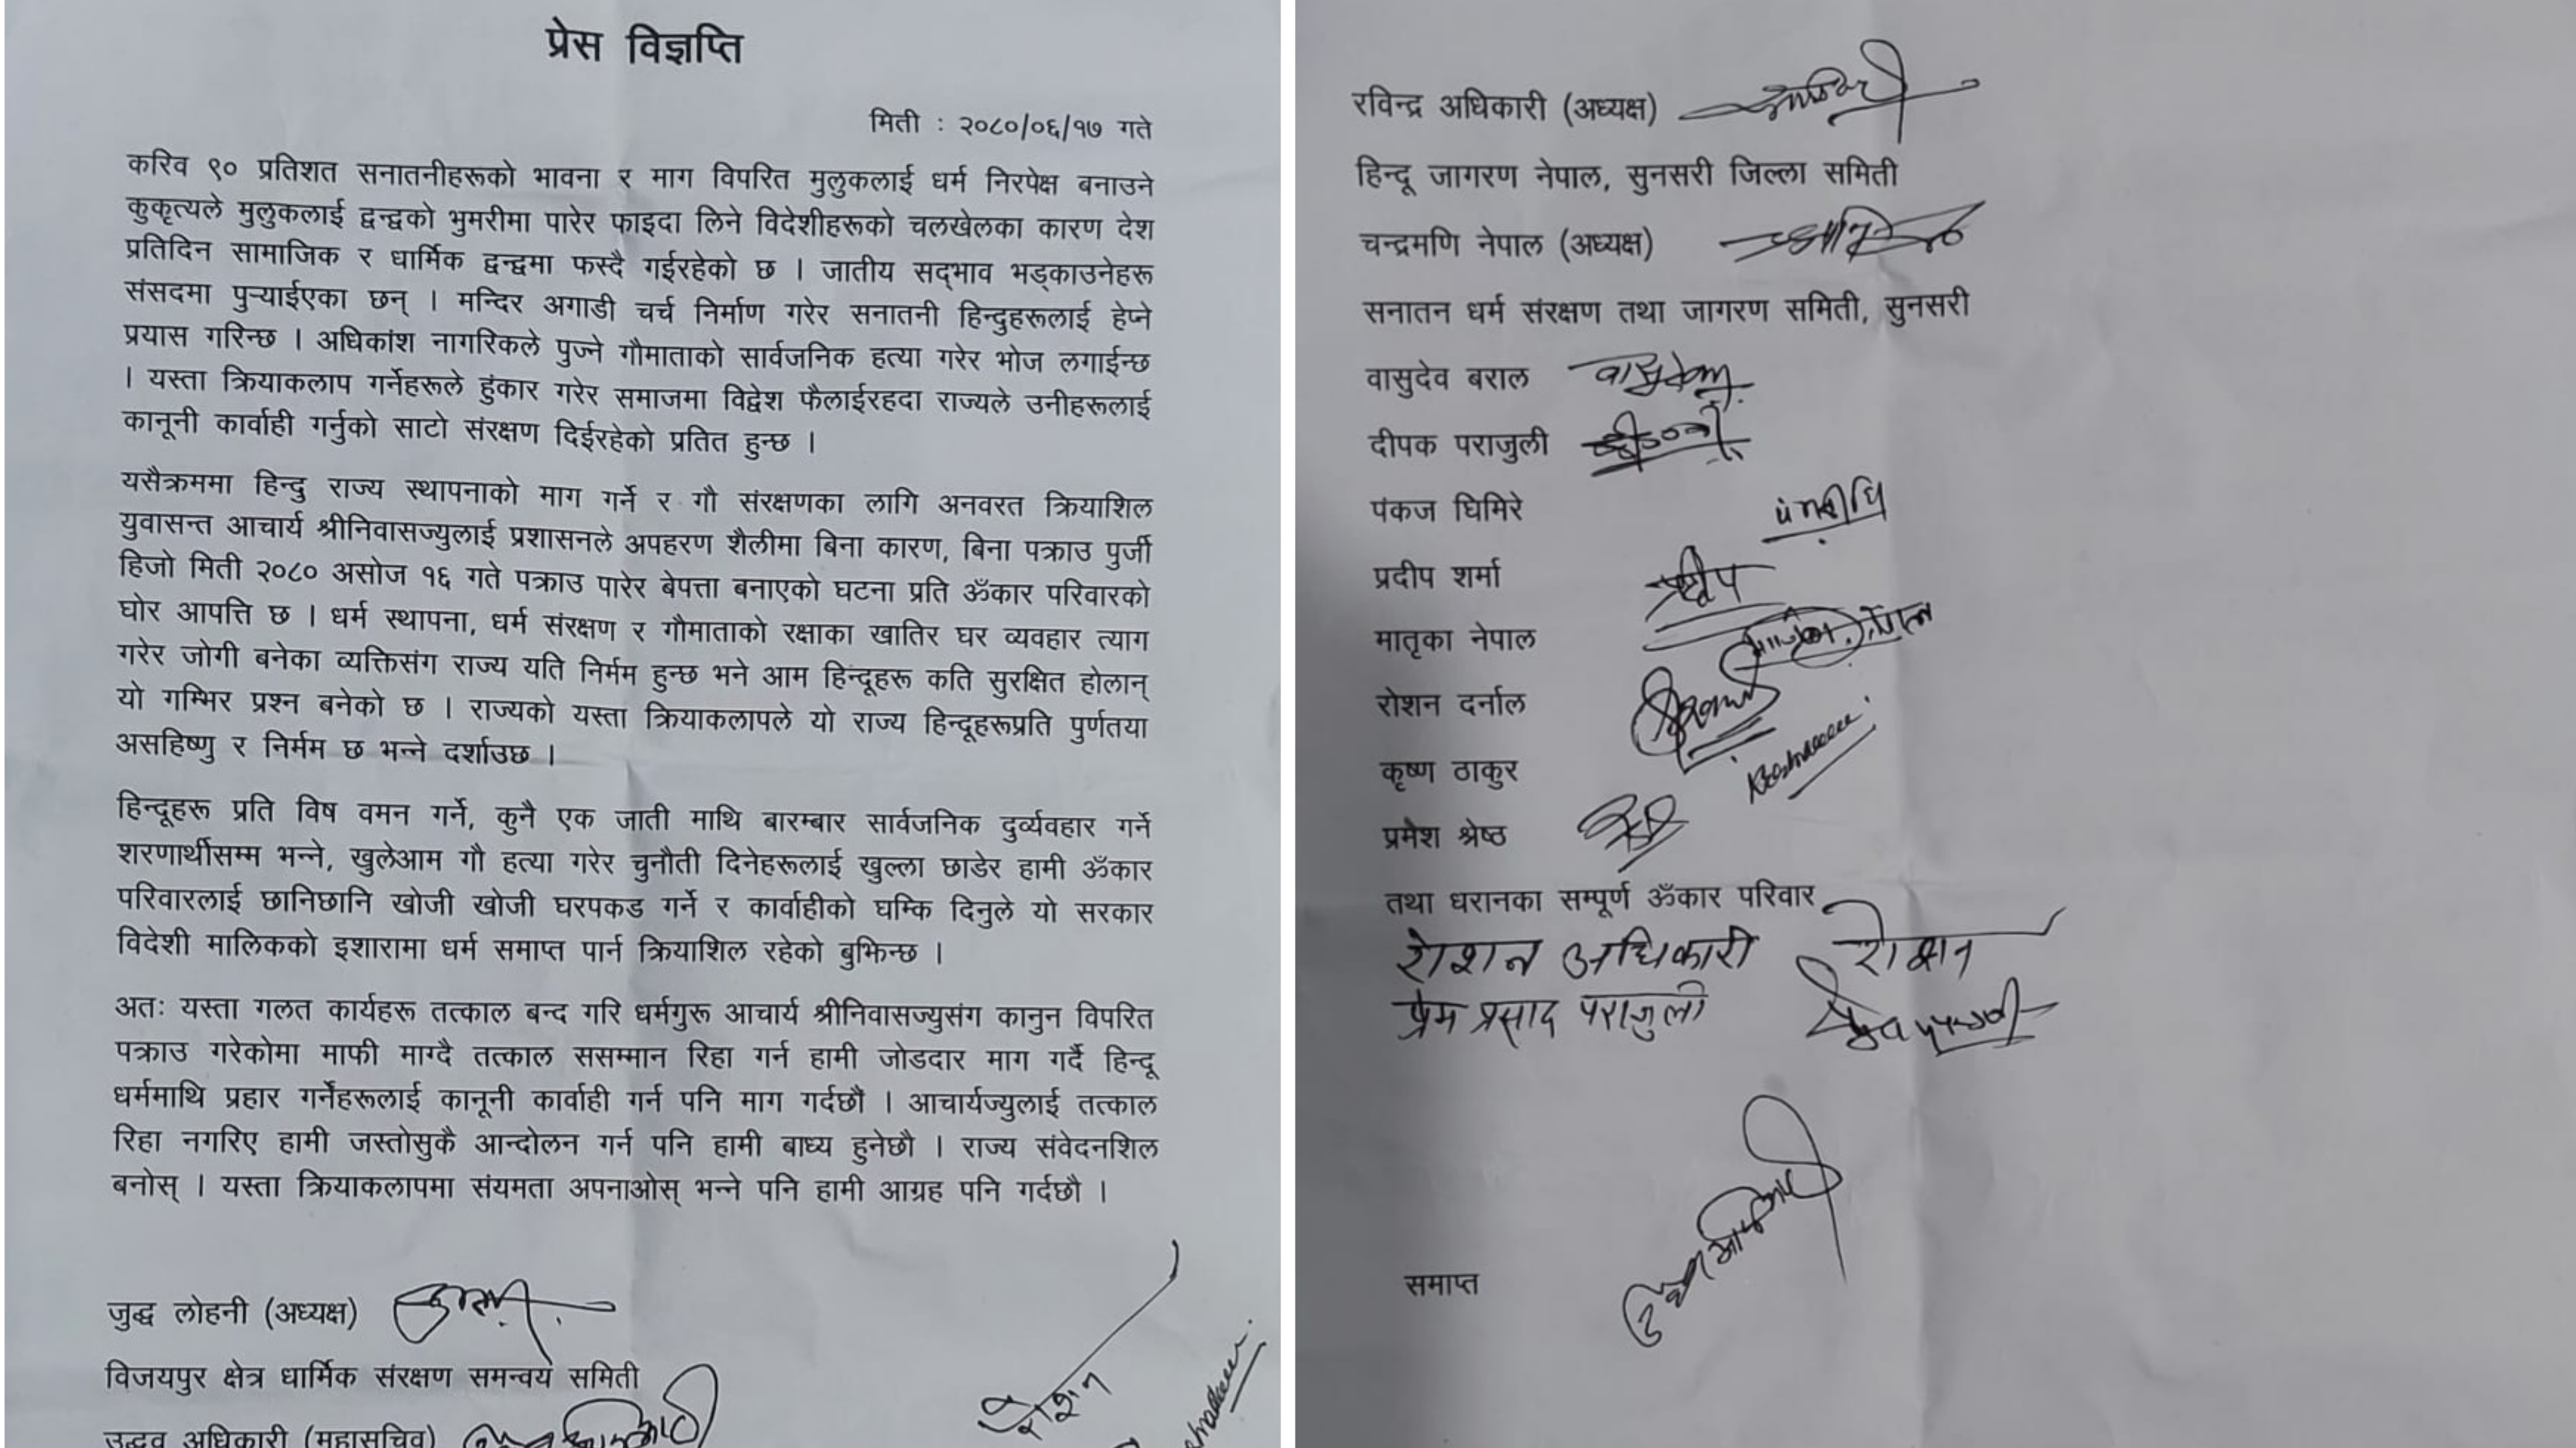 प्रेस विज्ञप्ति
मिती : २०८०/०६/१७ गते
करिव ९० प्रतिशत सनातनीहरूको भावना र माग विपरित मुलुकलाई धर्म निरपेक्ष बनाउने
कुकृत्यले मुलुकलाई द्वन्द्वको भुमरीमा पारेर फाइदा लिने विदेशीहरूको चलखेलका कारण देश
प्रतिदिन सामाजिक र धार्मिक द्वन्द्वमा फस्दै गईरहेको छ । जातीय सद्‌भाव भड्काउनेहरू
संसदमा पुऱ्याईएका छन् । मन्दिर अगाडी चर्च निर्माण गरेर सनातनी हिन्दुहरूलाई हेप्ने
प्रयास गरिन्छ । अधिकांश नागरिकले पुज्ने गौमाताको सार्वजनिक हत्या गरेर भोज लगाईन्छ
। यस्ता क्रियाकलाप गर्नेहरूले हुंकार गरेर समाजमा विद्वेश फैलाईरहदा राज्यले उनीहरूलाई
कानूनी कार्वाही गर्नुको साटो संरक्षण दिईरहेको प्रतित हुन्छ ।
यसैक्रममा हिन्दु राज्य स्थापनाको माग गर्ने र गौ संरक्षणका लागि अनवरत क्रियाशिल
युवासन्त आचार्य श्रीनिवासज्युलाई प्रशासनले अपहरण शैलीमा बिना कारण, बिना पक्राउ पुर्जी
हिजो मिती २०८० असोज १६ गते पक्राउ पारेर बेपत्ता बनाएको घटना प्रति ॐकार परिवारको
घोर आपत्ति छ । धर्म स्थापना, धर्म संरक्षण र गौमाताको रक्षाका खातिर घर व्यवहार त्याग
गरेर जोगी बनेका व्यक्तिसंग राज्य यति निर्मम हुन्छ भने आम हिन्दूहरू कति सुरक्षित होलान्
यो गम्भिर प्रश्न बनेको छ । राज्यको यस्ता क्रियाकलापले यो राज्य हिन्दूहरूप्रति पुर्णतया
असहिष्णु र निर्मम छ भन्ने दर्शाउछ ।
हिन्दूहरू प्रति विष वमन गर्ने, कुनै एक जाती माथि बारम्बार सार्वजनिक दुर्व्यवहार गर्ने
शरणार्थीसम्म भन्ने, खुलेआम गौ हत्या गरेर चुनौती दिनेहरूलाई खुल्ला छाडेर हामी ॐकार
परिवारलाई छानिछानि खोजी खोजी घरपकड गर्ने र कार्वाहीको घम्कि दिनुले यो सरकार
विदेशी मालिकको इशारामा धर्म समाप्त पार्न क्रियाशिल रहेको बुझिन्छ ।
अतः यस्ता गलत कार्यहरू तत्काल बन्द गरि धर्मगुरू आचार्य श्रीनिवासज्युसंग कानुन विपरित
पक्राउ गरेकोमा माफी माग्दै तत्काल ससम्मान रिहा गर्न हामी जोडदार माग गर्दै हिन्दू
धर्ममाथि प्रहार गर्नेहरूलाई कानूनी कार्वाही गर्न पनि माग गर्दछौं । आचार्यज्युलाई तत्काल
रिहा नगरिए हामी जस्तोसुकै आन्दोलन गर्न पनि हामी बाध्य हुनेछौ । राज्य संवेदनशिल
बनोस् । यस्ता क्रियाकलापमा संयमता अपनाओस् भन्ने पनि हामी आग्रह पनि गर्दछौ ।
जुद्ध लोहनी (अध्यक्ष)
विजयपुर क्षेत्र धार्मिक संरक्षण समन्वय समिती
उद्धव अधिकारी (महासचिव)
रविन्द्र अधिकारी (अध्यक्ष)
हिन्दू जागरण नेपाल, सुनसरी जिल्ला समिती
चन्द्रमणि नेपाल (अध्यक्ष)
सनातन धर्म संरक्षण तथा जागरण समिती, सुनसरी
वासुदेव बराल
दीपक पराजुली
पंकज घिमिरे
प्रदीप शर्मा प्रदीप
मातृका नेपाल
रोशन दर्नाल
कृष्ण ठाकुर
प्रमेश श्रेष्ठ
तथा धरानका सम्पूर्ण ॐकार परिवार
रोशन अधिकारी रोशन
प्रेम प्रसाद पराजुली
समाप्त